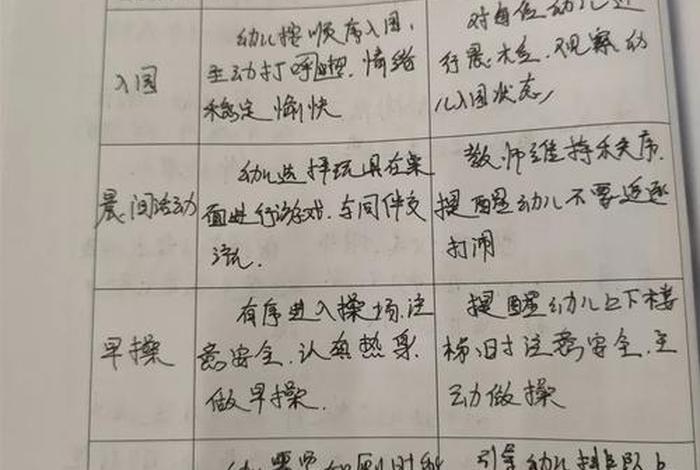 入园
幼儿按顺序入园,
主动打呼噜. 情绪
稳定 愉快
对每位幼儿进
行晨检. 观察幼
儿入园状态
晨间活动
幼儿选择玩具在桌
面进行游戏. 与同伴交
流.
教师维持秩序.
提醒幼儿不要追逐
打闹
早操
有序进入操场. 注
意安全. 认真热身.
做早操.
提醒幼儿上下楼
梯时注意安全. 主
动做操
引导幼儿排队